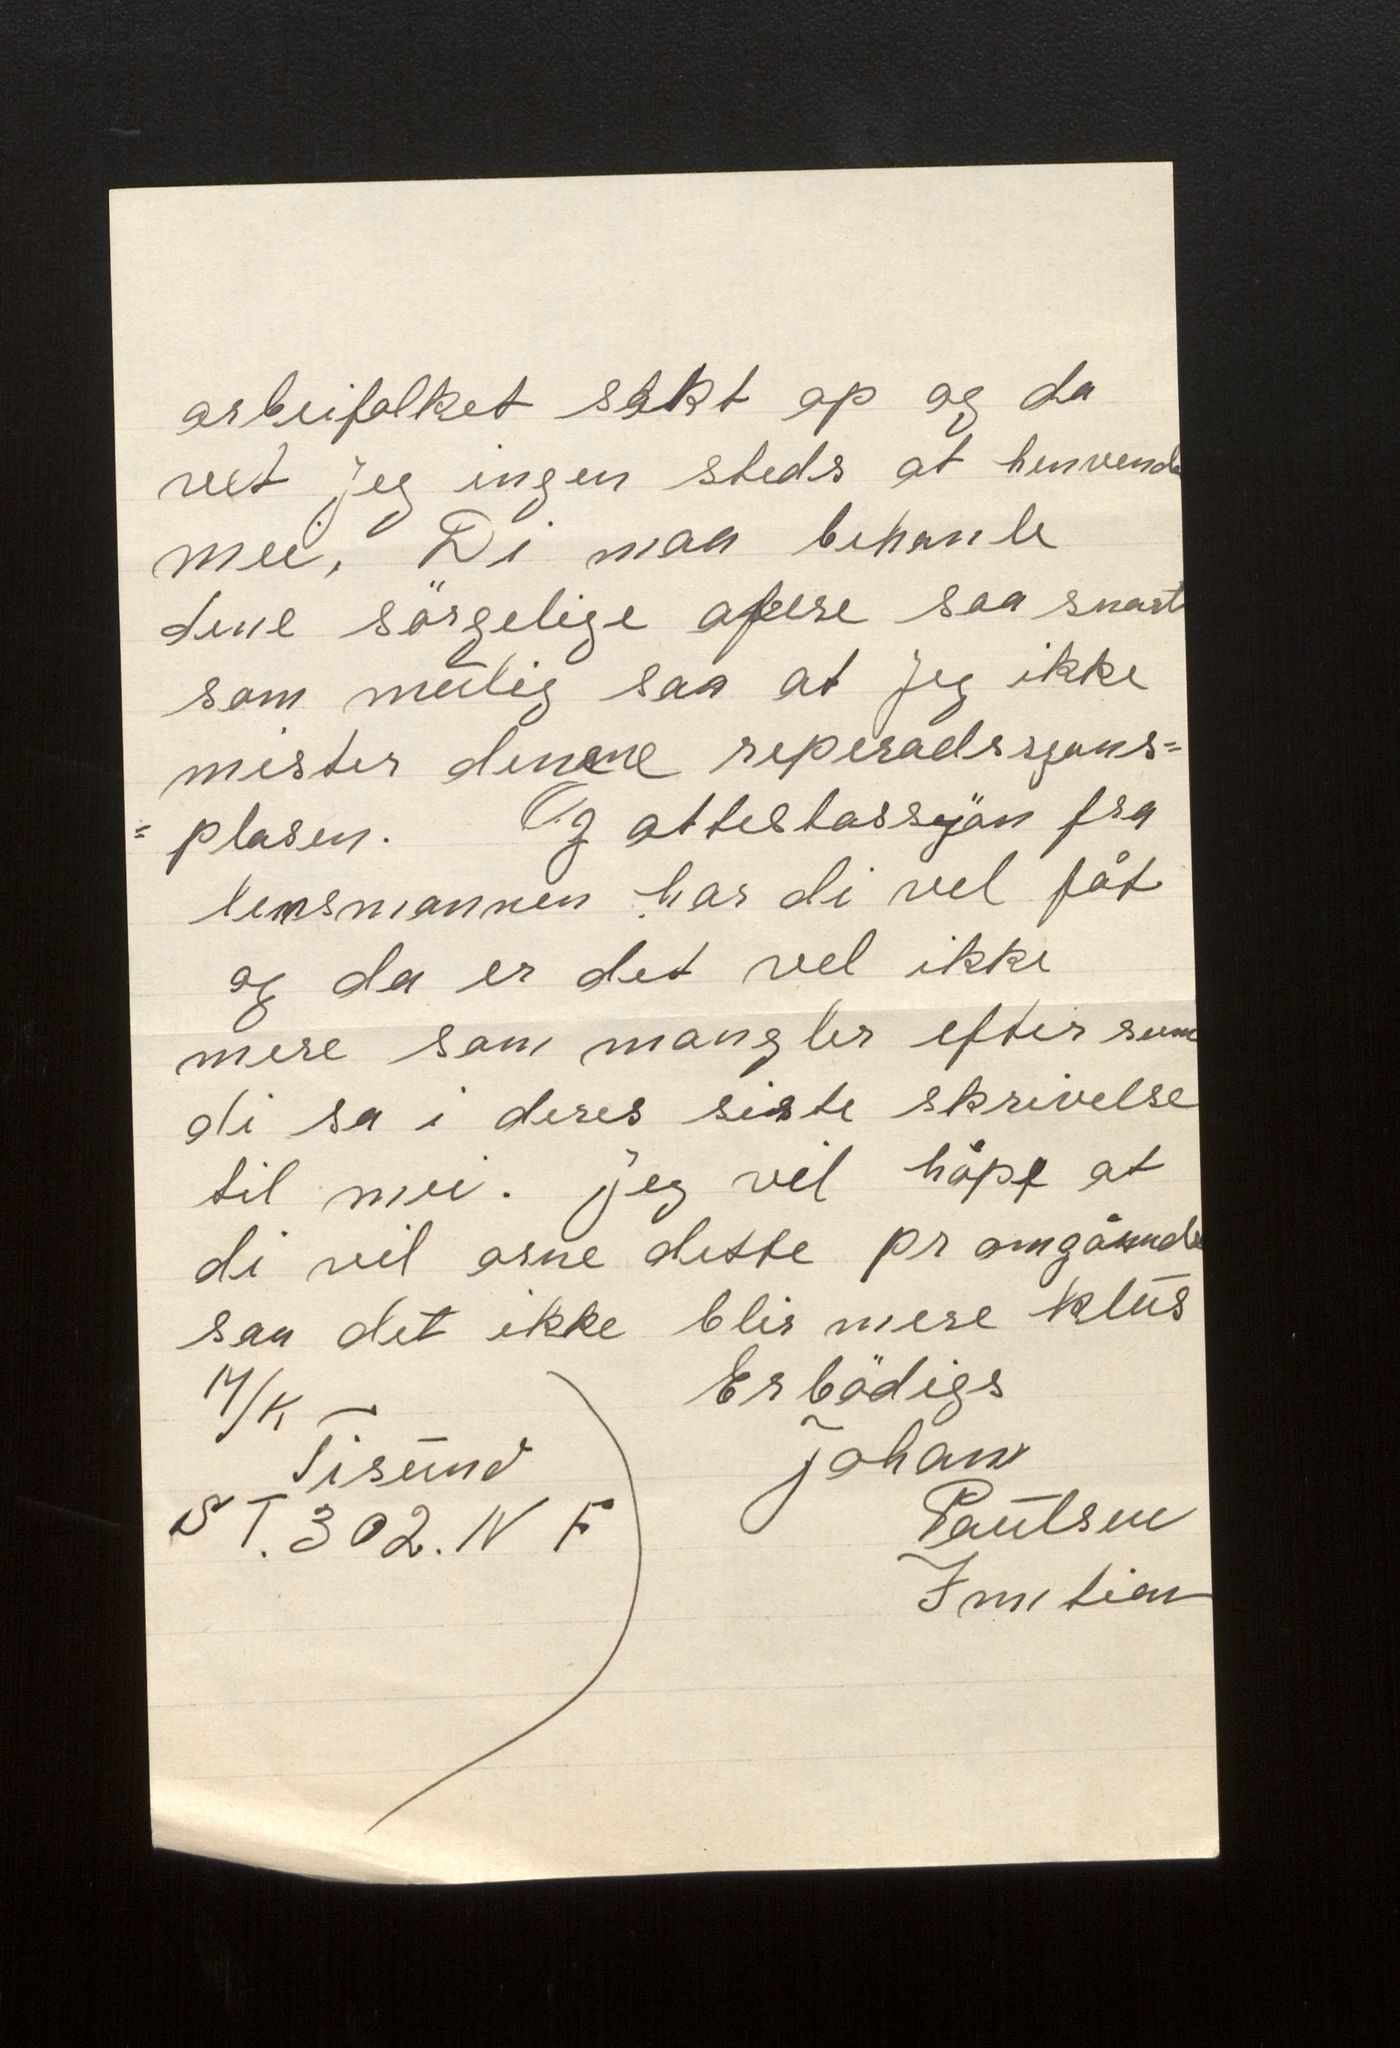 arbeifolket sakt op og da
vet jeg ingen steds at henvende
mei, Di maa behanle
dene sörgelige afere saa snart
som mulig saa at jeg ikke
mister denene reperadssjons=
=plasen. Og attestassjön fra
lensmannen har di vel fåt
og da er det vel ikke
mere som mangler efter som
di sa i deres siste skrivelse
til mei. jeg vil håpe at
di vil orne dette pr omgånde
saa det ikke blir mere klus
M/K Erbödigs
Tisund johan
ST.302.N F Paulsen